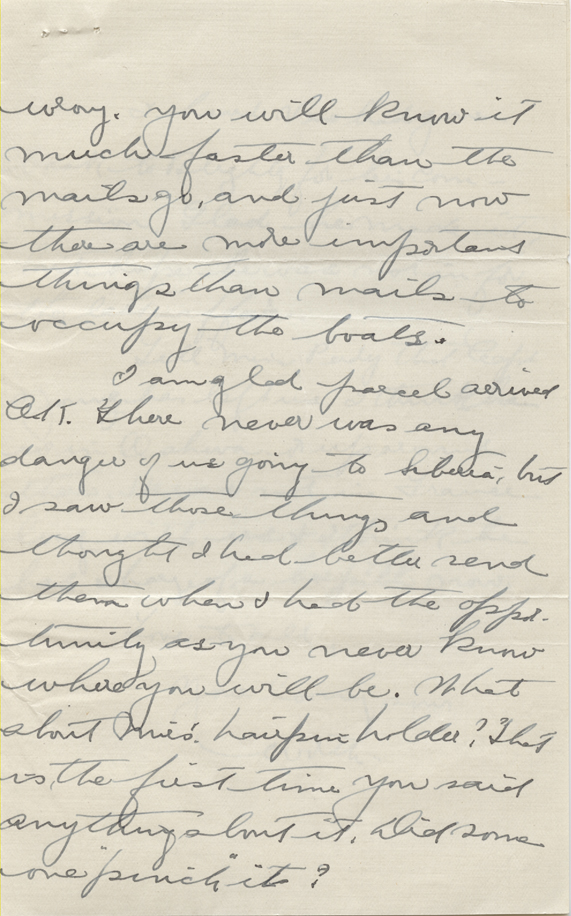 wrong. you will know it
much faster than the
mails go, and just now
there are more important
things than mails to
occupy the boats.
I am glad parcel arrived
O.K. There never was any
danger of us going to Siberia, but
I saw those things and
thought I had better send
them when I had the oppor-
tunity as you never know
where you will be. What
about hairpin holder? That
is the first time you said
anything about it. Did some
one "pinch" it?